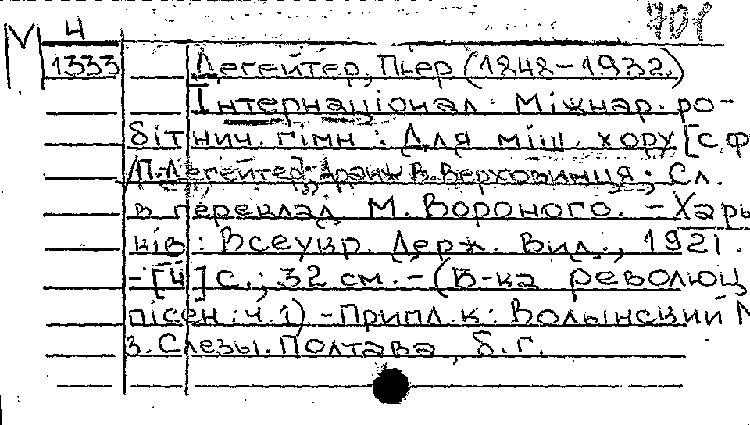 М 4 701
1333 Дегейтер, Пьер (1848-1932.)
Інтернаціонал. Міжнар. ро-
бітнич. гімн : Для міш. хору [с ф
/П. Дегейтер; Аранж В. Верховинця; Сл.
в переклад М. Вороного. - Харь
ків : Всеукр. Держ. Вид., 1921.
- [4] с.; 32 см. - (Б-ка революц
пісен: ч. 1) - Припл. к: Волынский М
3. Слезы. Полтава, б. г.